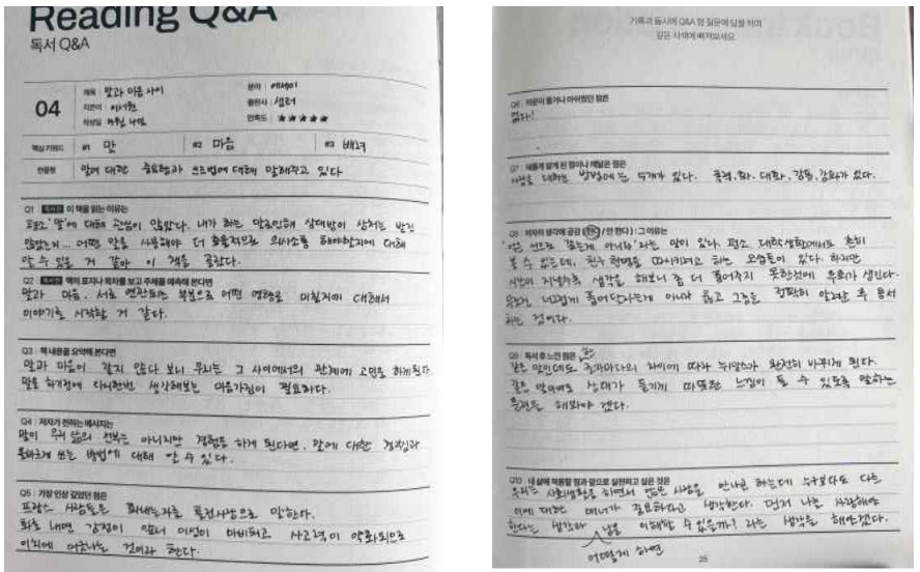 Reading Q&A
독서 Q&A
04
제목 말과 마음 사이
분야 에세이
지은이 이서원
출판사 샘터
만족도 ★★★★★
핵심 키워드 #1 말 #2 마음 #3 배려
한줄평 말에 대한 중요함과 쓰는법에 대해 말해주고 있다
Q1 독서 전 이 책을 읽는 이유는
평소 '말'에 대해 관심이 많았다. 내가 하는 말로인해 상대방이 상처는 받진
않았는지... 어떤 말을 사용해야 더 효율적으로 의사소통 해야할지에 대해
알 수 있을 거 같아 이 책을 골랐다.
Q2 독서 전 책의 표지나 목차를 보고 주제를 예측해 본다면
말과 마음, 서로 연관되는 부분으로 어떤 영향을 미칠지에 대해서
이야기를 시작할 거 같다.
Q3 책 내용을 요약해 본다면
말과 마음이 같지 않다 보니 우리는 그 사이에서의 관계에 고민을 하게된다
말을 하기전에 다시한번 생각해보는 마음가짐이 필요하다.
Q4 저자가 전하는 메시지는
말이 우리 삶의 전부는 아니지만 경험을 하게 된다면, 말에 대한 진심과
올바르게 쓰는 방법에 대해 알 수 있다.
Q5 가장 인상 깊었던 점은
프랑스 사람들은 화내는자를 패전사람으로 말한다.
화를 내면 감정이 앞서 이성이 마비되고 사고력이 약화되므로
이치에 어긋나는 것이라 한다.
기록과 동시에 Q&A 형 질문에 답을 하며
깊은 사색에 빠져보세요
Q6 의문이 들거나 아쉬웠던 점은
없다!
Q7 새롭게 알게 된 점이나 깨달은 점은
사람을 대하는 방법에는 5개가 있다. 폭력, 화, 대화, 감동, 감화가 있다.
Q8 저자의 생각에 공감 (한다 / 안 한다) : 그 이유는
아니라'라는 말이 있다. 평소 대학생활에서도 흔히
볼 수 있는데, 친구 편명을 따시키려고 하는 모습들이 있다. 하지만
시간이 지날수록 생각을 해보니 좀 더 품어주지 못한것에 후회가 생긴다.
무조건 너그럽게 품어준다는게 아니라 옳고 그름을 정확히 알려준 후 용서
하는 것이다.
Q9 독서 후 느낀 점은
같은 말인데도 차이에 따라 뉘앙스가 완전히 바뀌게 된다.
같은 말이어도 상대가 듣기에 따뜻한 느낌이 들 수 있도록 말하는
훈련을 해봐야 겠다.
Q10 내 삶에 적용할 점과 앞으로 실천하고 싶은 것은
우리는 사회생활을 하면서 많은 사람을 만나곤 하는데 누구보다도 다른
이에 대한 배려가 필요하다고 생각한다. 먼저 나를 사랑해야
한다는 생각과 남을 이해할 수 있을까? 라는 생각을 해야겠다.
어떻게 하면
25